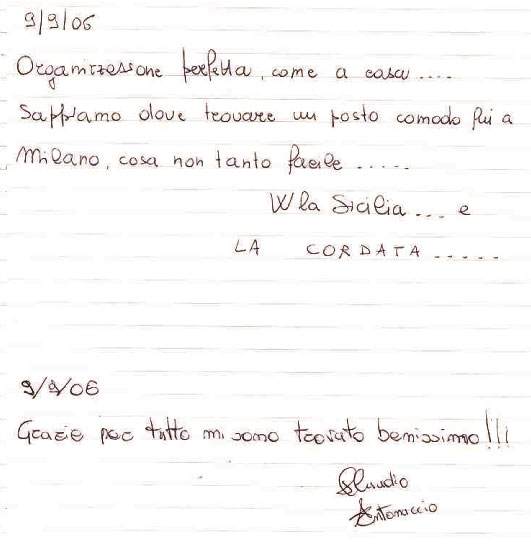 9/9/06
Organizzazione perfetta, come a casa ....
Sappiamo dove trovare un posto comodo qui a
Milano, cosa non tanto facile .....
W la Sicilia ... e
LA CORDATA .....
9/9/06
Grazie per tutto mi sono trovato benissimo!!!
Claudio
Antonaccio